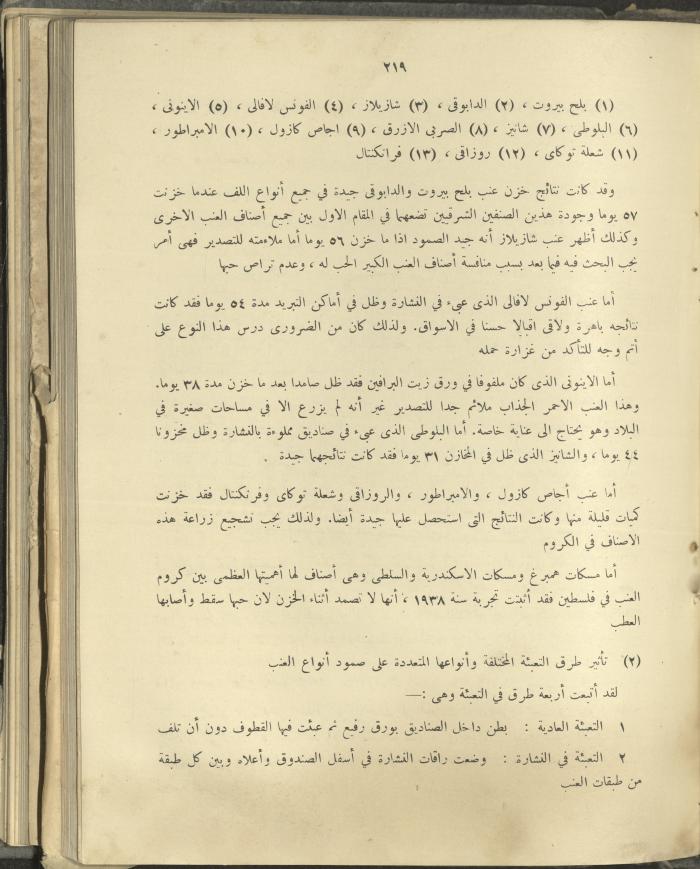 ٢١٩
(١) بلح بيروت ، (٢) الدابوقى ، (٣) شازيلاز ، (٤) الفونس لافالى ، (٥) الاينونى ،
(٦) البلوطى ، (٧) شانيز ، (٨) الصربى الازرق ، (٩) اجاص كازول ، (١٠) الامبراطور ،
(١١) شعلة توكاى ، (١٢) روزاقى ، (١٣) فرانكنتال
وقد كانت نتائج خزن عنب بلح بيروت والدابوقى جيدة في جميع أنواع اللف عندما خزنت
٥٧ يوما وجودة هذين الصنفين الشرقيين تضعهما في المقام الاول بين جميع أصناف العنب الاخرى
وكذلك أظهر عنب شازيلاز أنه جيد الصمود اذا ما خزن ٥٦ يوما أما ملاءمته للتصدير فهى أمر
يجب البحث فيه فيما بعد بسبب منافسة أصناف العنب الكبير الحب له ، وعدم تراص حبها
أما عنب الفونس لافالى الذى عبىء في النشارة وظل في أماكن التبريد مدة ٥٤ يوما فقد كانت
نتائجه باهرة ولاقى اقبالا حسنا في الاسواق. ولذلك كان من الضرورى درس هذا النوع على
أتم وجه للتأكد من غزارة حمله
أما الاينونى الذى كان ملفوفا في ورق زيت البرافين فقد ظل صامدا بعد ما خزن مدة ٣٨ يوما.
وهذا العنب الاحمر الجذاب ملائم جدا للتصدير غير أنه لم يزرع الا في مساحات صغيرة في
البلاد وهو يحتاج الى عناية خاصة. أما البلوطى الذى عبىء في صناديق مملوءة بالنشارة وظل مخزونا
٤٤ يوما ، والشانيز الذى ظل في المخازن ٣١ يوما فقد كانت نتائجهما جيدة .
أما عنب أجاص كازول ، والامبراطور ، والروزاقى وشعلة توكاى وفرنكنتال فقد خزنت
كميات قليلة منها وكانت النتائج التى استحصل عليها جيدة أيضا. ولذلك يجب تشجيع زراعة هذه
الاصناف في الكروم
أما مسكات همبرغ ومسكات الاسكندرية والسلطى وهى أصناف لها أهميتها العظمى بين كروم
العنب في فلسطين فقد أثبتت تجربة سنة ١٩٣٨ ، أنها لا تصمد أثناء الخزن لان حبها سقط وأصابها
العطب
(٢) تأثير طرق التعبئة المختلفة وأنواعها المتعددة على صمود أنواع العنب
لقد أتبعت أربعة طرق في التعبئة وهى :—
١ التعبئة العادية : بطن داخل الصناديق بورق رفيع ثم عبئت فيها القطوف دون أن تلف
٢ التعبئة في النشارة : وضعت راقات النشارة في أسفل الصندوق وأعلاه وبين كل طبقة
من طبقات العنب